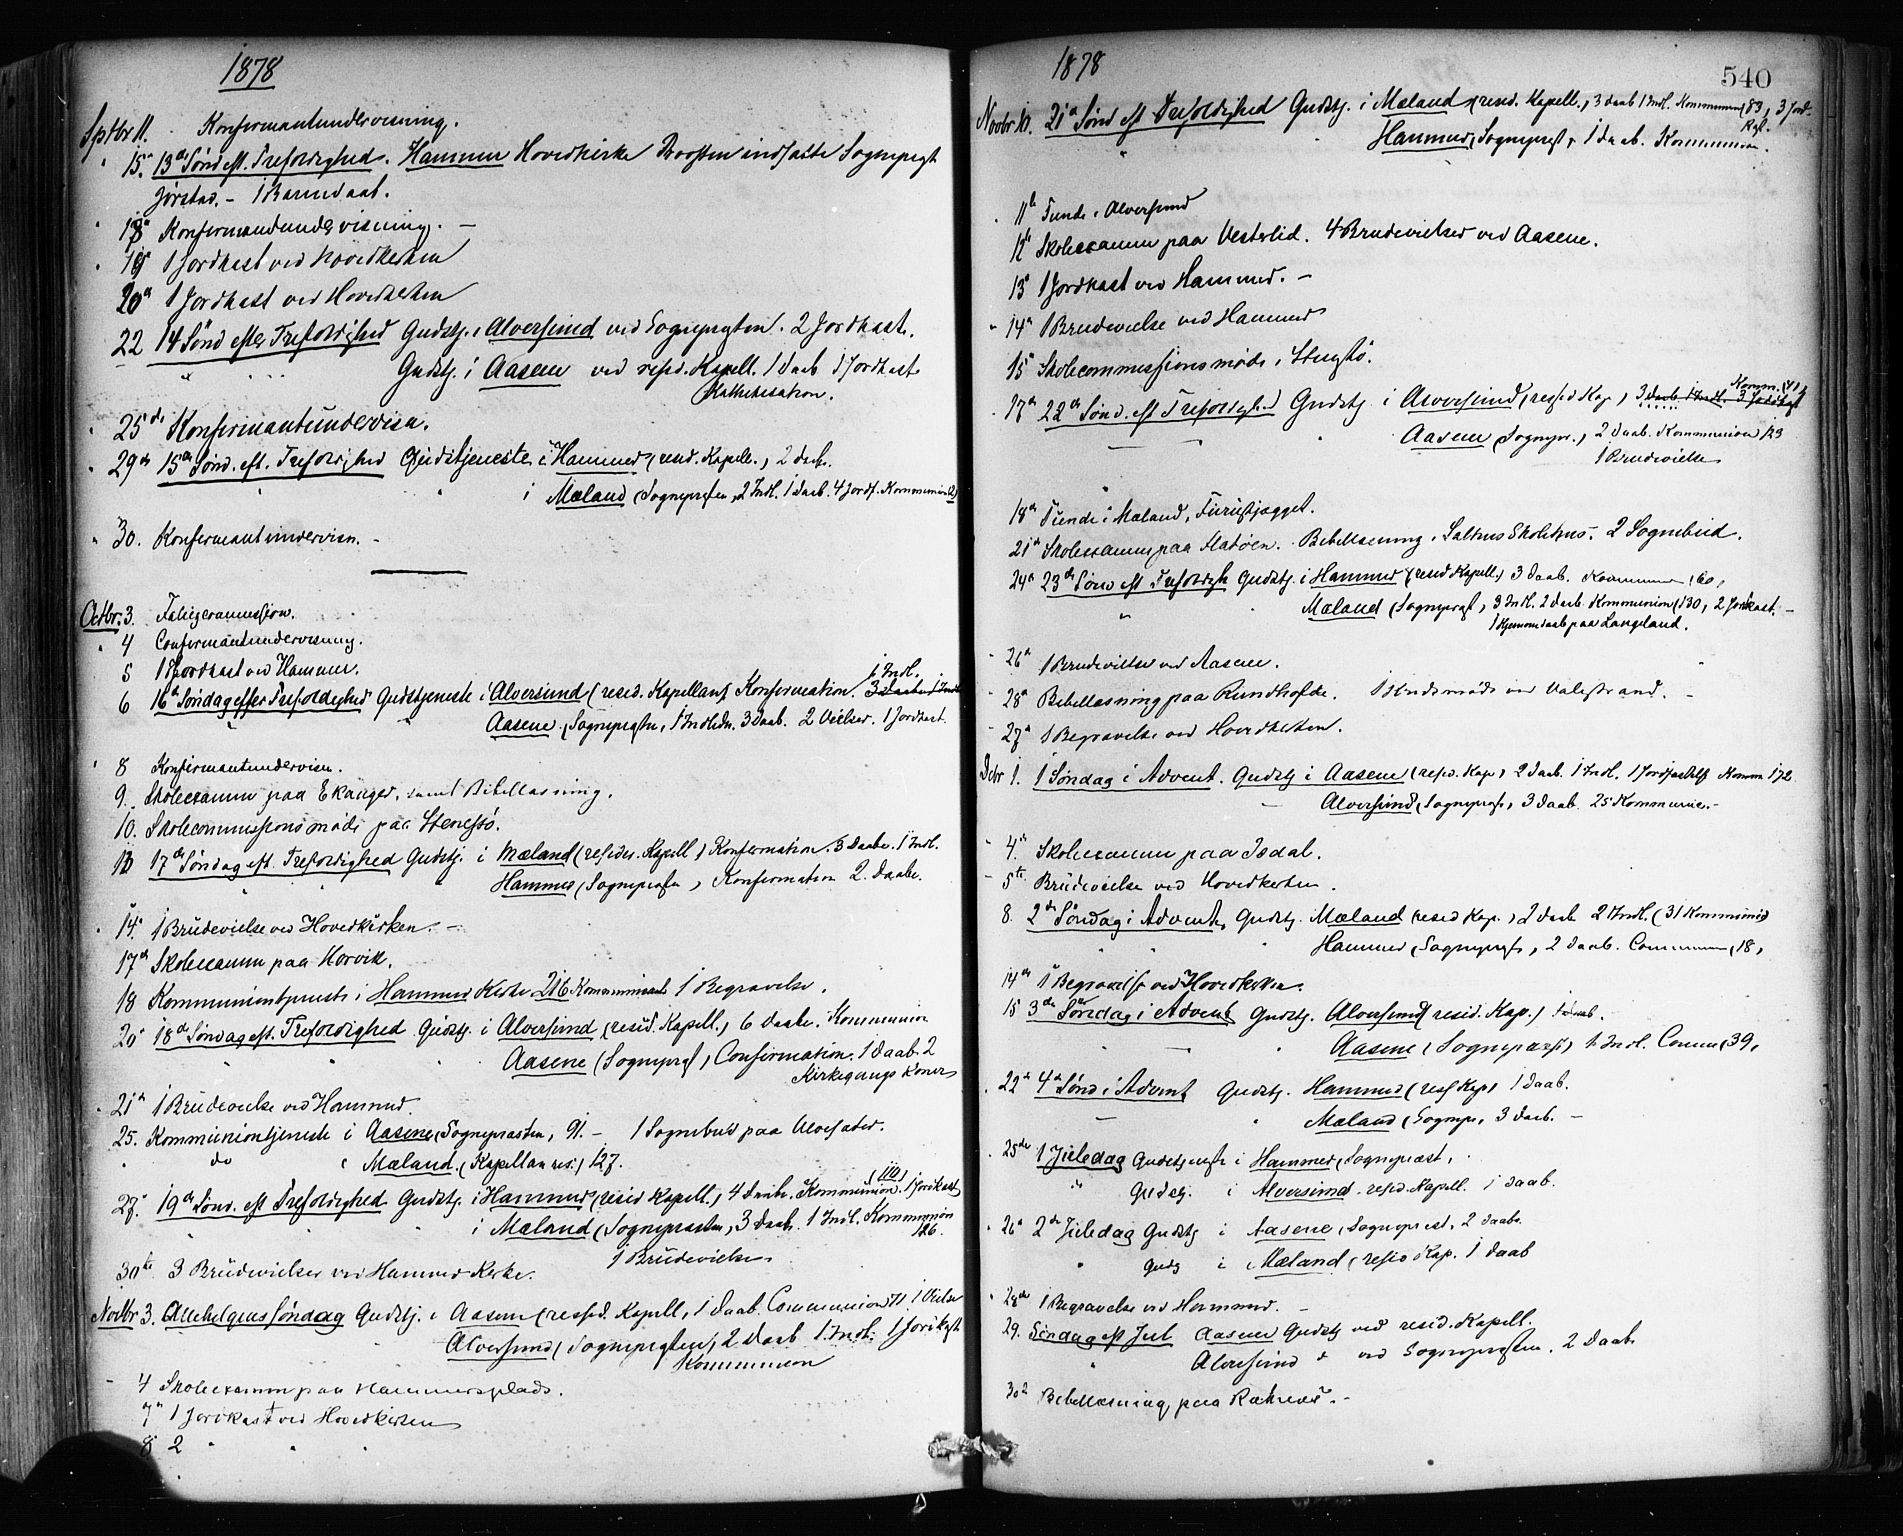 1878
Sptbr 11. Konfermantundervisning.
" 15. 13de Sønd eft. Trefoldighed. Hammer Hovedkirke Provsten indsatte Sognepræst
Jørstad. – 1 Barnedaab.
" 18 Konfermandundervisning. –
" 19 1 Jordkast ved Hovedkirken
20 1 Jordkast ved Hovedkirken
22 14 Sønd efter Trefoldighed Gudstj. i Alversund ved Sognepræsten. 2 Jordkast.
Gudstj. i Aasene ved resid. Kapell. 1 Daab 1 Jordkast
Kathekisation.
" 25de Konfermantundervisn.
" 29de 15de Sønd. eft. Trefoldighed Gudstjeneste i Hammer (resid. Kapell.) 2 Daab.
i Mæland (Sognepræsten) 2 Indl. 1 Daab. 4 Jordk. Kommunion
" 30. Konfermantundervisn. –
Octbr. 3. Fattigcommission.
" 4 Confermantundervisning.
5 1 Jordkast ved Hammer.
1 Indl.
6 16de Søndag efter Trefoldighed Gudstjeneste i Alversund (resid. Kapellan) Konfirmation. 3 Daabe 1 Indl
Aasene (Sognepræsten) 1 Indledn. 3 Daab. 2 Vielser. 1 Jordkast.
" 8 Konfermantundervisn.
9. Skoleexamen paa Ekanger, samt Bibellæsning.
10. Skolecommissionsmøde paa Stenestø.
13 17de Søndag eft. Trefoldighed Gudstj. i Mæland (resider. Kapell) Konfermation. 3 Daabe. 1 Indl.
Hammer (Sognepræsten) Konfermation 2 Daabe.
" 14. 1 Brudevielse ved Hovedkirken. –
17de Skoleexamen paa Horvik.
18 Kommuniontjeneste i Hammer Kirke 216 Kommunicant 1 Begravelse.
20 18de Søndag eft. Trefoldighed Gudstj. i Alversund (resid. Kapell.) 6 Daabe. Kommunion
Aasene (Sognepræst) Confirmation. 1 Daab. 2
Kirkegangs Koner
" 21de 1 Brudevielse ved Hammer.
25. Kommuniontjeneste i Aasene (Sognepræsten) 91. – 1 Sognebud paa
" do Mæland. (Kapellan res.) 127.
(110)
27. 19de Sønd. eft Trefoldighed Gudstj. i Hammer (resid Kapell) 4 Daabe. Kommunion. 1 Jordkast
i Mæland (Sognepræsten) 3 Daab. 1 Indl. Kommunion
126.
1 Brudevielse
30te 3 Brudevielser ved Hammer Kirke.
Novbr 3. Allehelgens Søndag Gudstj. i Aasene (resid. Kapell) 1 Daab. Communion 71. 1 Vielse
Alversund (Sognepræsten) 2 Daab 1 Indl. 1 Jordkast
Kommunion
– 4 Skoleexamen paa Hammersplads.
7de 1 Jordkast ved Hovedkirken
8 2 " " "
1878
540
Novbr 10. 21de Sønd eft Trefoldighed Gudstj. i Mæland (resid. Kapell.) 3 Daab 1 Indl. Kommunion (83) 3 Jord-
kast.
" Hammer (Sognepræst) 1 Daab. Kommunion.
11te Tende i Alversund
12te Skoleexamen paa Vesterlid. 4 Brudevielser ved Aasene.
13 1 Jordkast ved Hammer. –
" 14de 1 Brudevielse ved Hammer
15 Skolecommissionsmøde i Stenestø.
Komm. (41)
17de 22de Sønd. eft Trefoldighed Gudstj. i Alversund (resid Kap) 3 Daab 1 Indl. 3 Jordkast
– Aasene (Sognepr.) 2 Daab. Kommunion 123
1 Brudevielse
18de Tiende i Mæland, Furuskjægget.
21de Skoleexamen paa Flatøen. Bibellæsning i Salhus Skolehus. 2 Sognebud.
24de 23de Sønd eft Trefoldigh Gudstj. i Hammer (resid Kapell.) 3 Daab. Kommunion (60)
" Mæland (Sognepræst) 3 Indl. 2 Daab. Kommunion (130) 2 Jordkast. –
1 Hjemmedaab paa Langeland.
– 26de 1 Brudevielse ved Aasene.
" 28de Bibellæsning paa Rundhofde. 1 ved Valestrand. –
– 27de 1 Begravelse ved Hovedkirken.
Dcbr 1. 1 Søndag i Advent. Gudstj i Aasene (resid. Kap) 2 Daab. 1 Indl. 1 Jordfæstelse Komm 172
– Alversund (Sognepræst) 3 Daab. 25 Kommunic. –
– 4de Skoleexamen paa Isdal.
– 5te Brudevielse ved Hovedkirken.
8. 2de Søndag i Advent, Gudstj. Mæland (resid Kap.) 2 Daab 2 Indl. (31 Kommunic)
" Hammer (Sognepræst) 2 Daab. Communion (18)
14de 1 Begravelse ved Hovedkirken.
15 3de Søndag i Advent Gudstj. Alversund (resid. Kap.) 1 Daab.
– Aasene (Sognepræst) 1 Indl. Comm (39)
" 22de 4de Sønd i Advent Gudstj. Hammer (res Kap) 1 Daab.
– " Mæland (Sognepr) 3 Daab. –
" 25de 1 Juledag Gudstjeneste i Hammer (Sognepræst)
" Gudstj. i Alversund. resid. Kapell. 1 Daab.
" 26de 2den Juledag Gudstj i Aasene (Sognepræst) 2 Daabe.
" Gudstj i Mæland (resid Kap. 1 Daab
" 28de 1 Begravelse ved Hammer. –
29. Søndag eft Jul Aasene Gudstj ved resid. Kapell.
" Alversund d ved Sognepræsten. 2 Daab
30 Bibellæsning paa Raknes. –